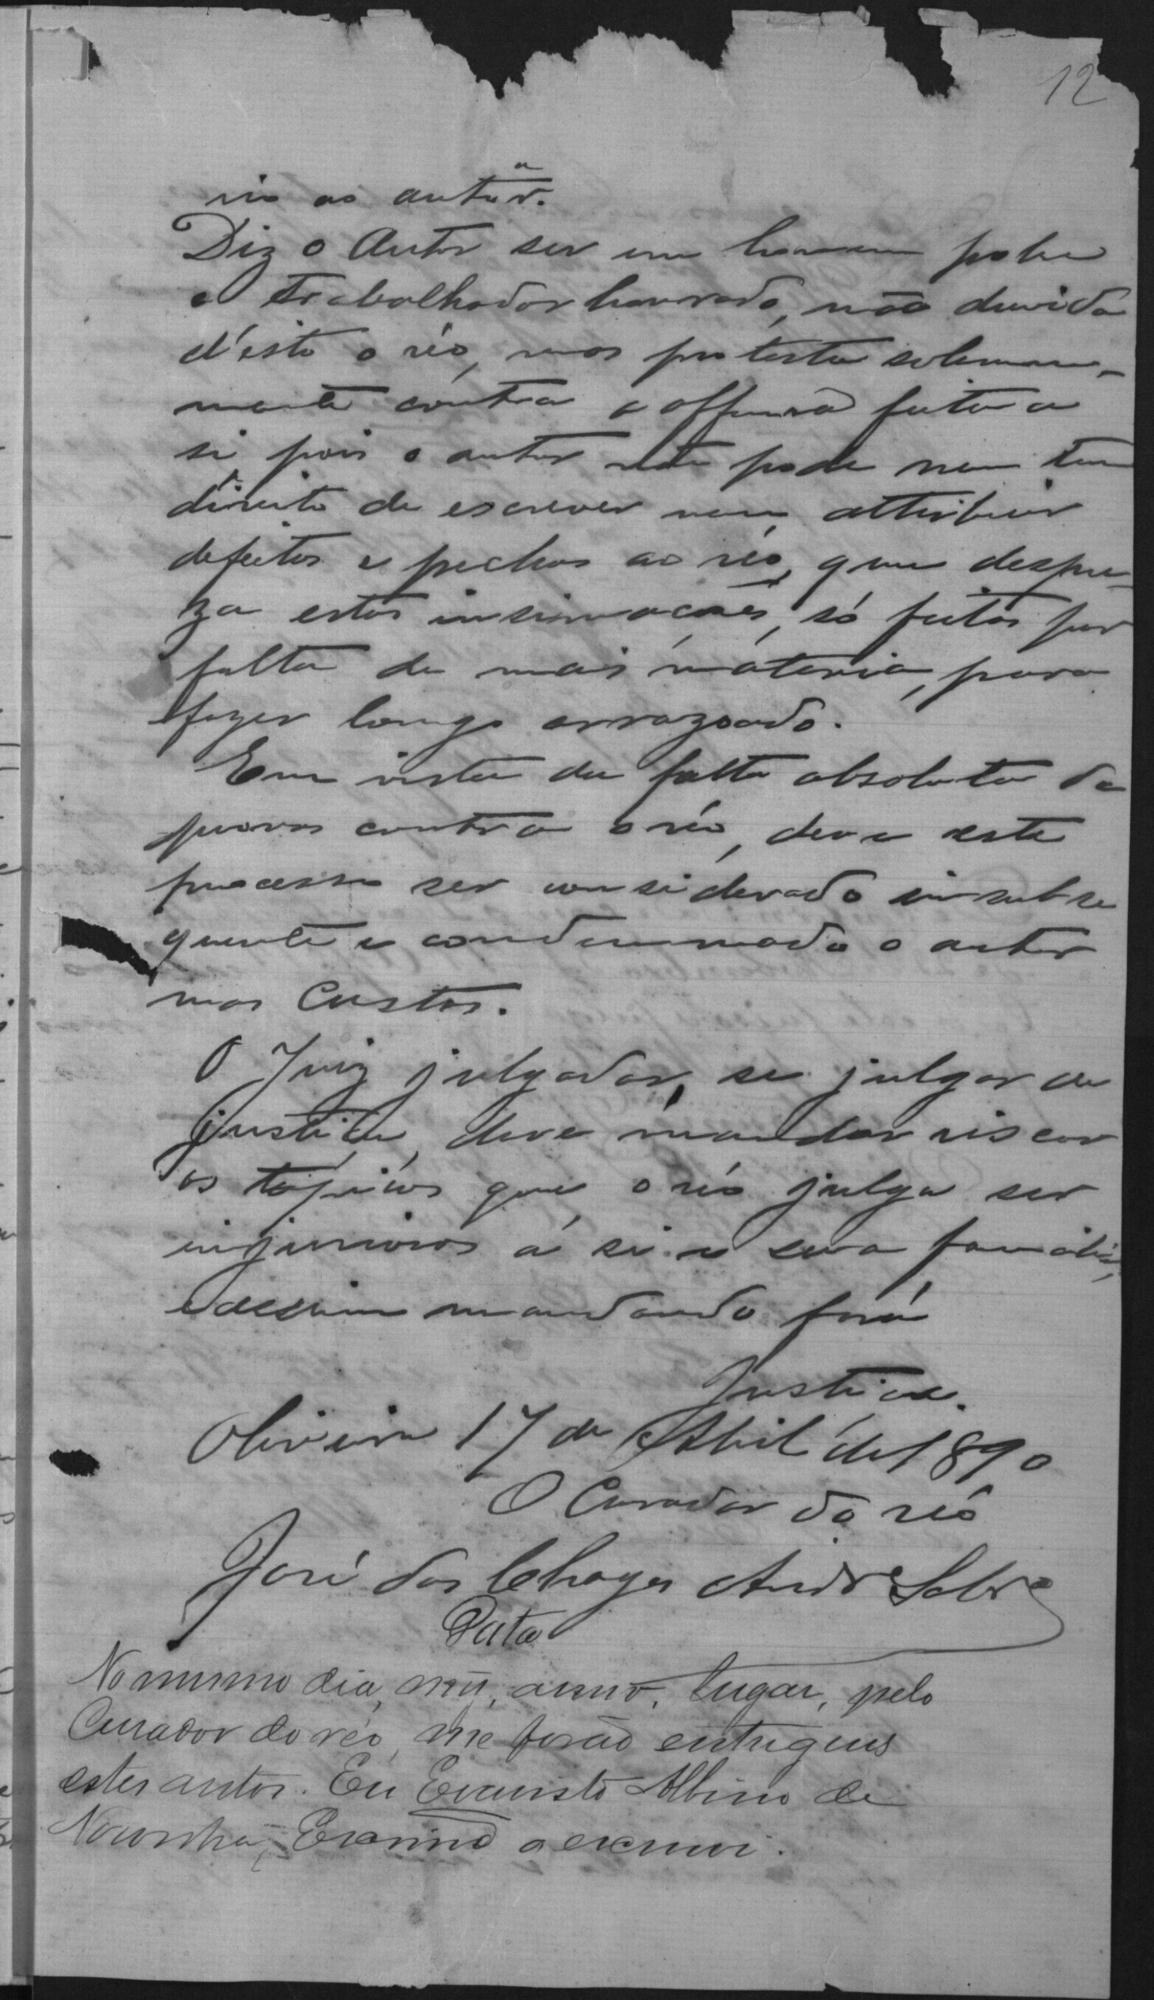 12
rio ao autor.
Diz o Autor ser um homem pobre
e trabalhador honrado, não duvida
d'isto o réo, mas protesta solemne-
mente contra a offensa feita a
si pois o autor não pode nem tem
direito de escrever nem attribuir
defeitos e pechas ao réo, que despre-
za estas insinuações, só feitas por
falta de mais materia, para
fazer longo arrazoado.
Em vista da falta absoluta de
provas contra o réo, deve este
processo ser considerado insubse
quente e condemnado o autor
nas custas.
O Juiz julgador, se julgar de
justiça, deve mandar riscar
os topicos que o réo julga ser
injuriosos á si e sua familia,
e assim mandando fará
Justiça.
Oliveira 17 de Abril de 1890
O Curador do réo
José das Chagas Andrade Sobro
Data
No mesmo dia, mez, anno, lugar, pelo
Curador do réo, me forão entregues
estes autos. Eu Evaristo Albino de
Noronha, Escrivão o escrevi.